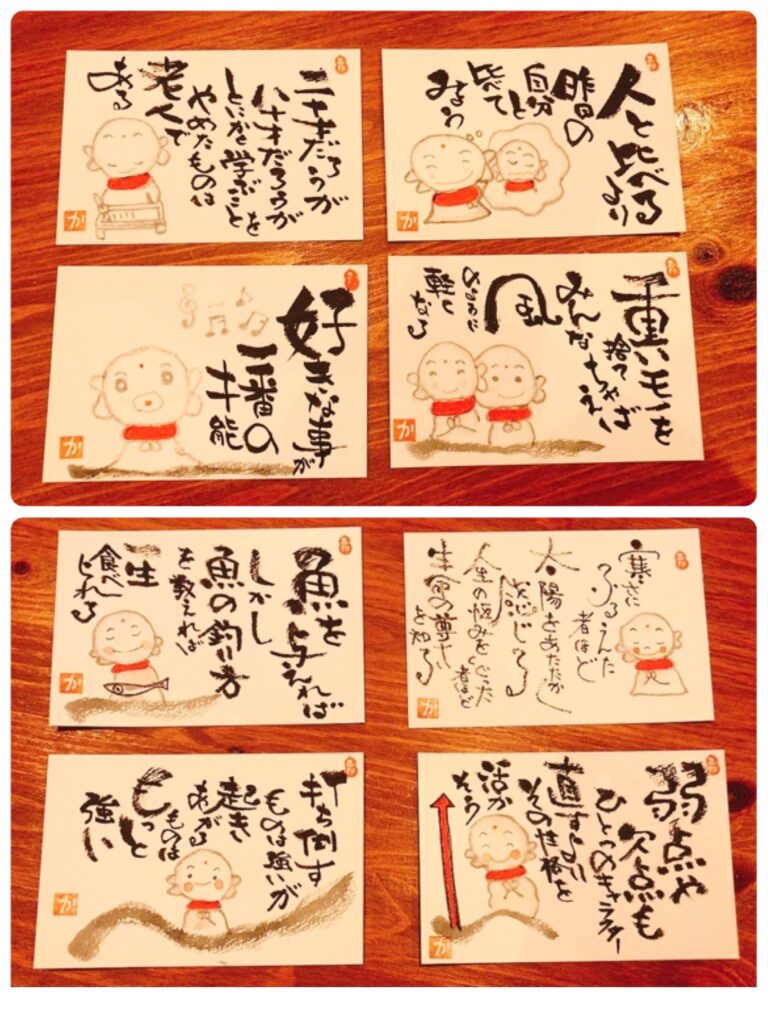 二十才だろうが
八十才だろうが
とにかく学ぶことを
やめたものは
老人で
ある
か
人と比べるより
昨日の
自分と
比べて
みよう
か
好きな事が
一番の
才能
か
重いモノを
みんな捨てちゃえば
風
のように
軽く
なる
か
魚を与えれば
しかし
魚の釣り方
を教えれば
一生
食べ
られる
か
寒さに
ふるえた
者ほど
太陽をあたたかく
感じる
人生の悩みをくぐった
者ほど
生命の尊さ
を知る
か
打ち倒す
ものは強いが
起き
あがる
ものは
もっと
強い
か
弱点や
欠点も
ひとつのキャラクター
直すより
その性格を
活か
そう
か